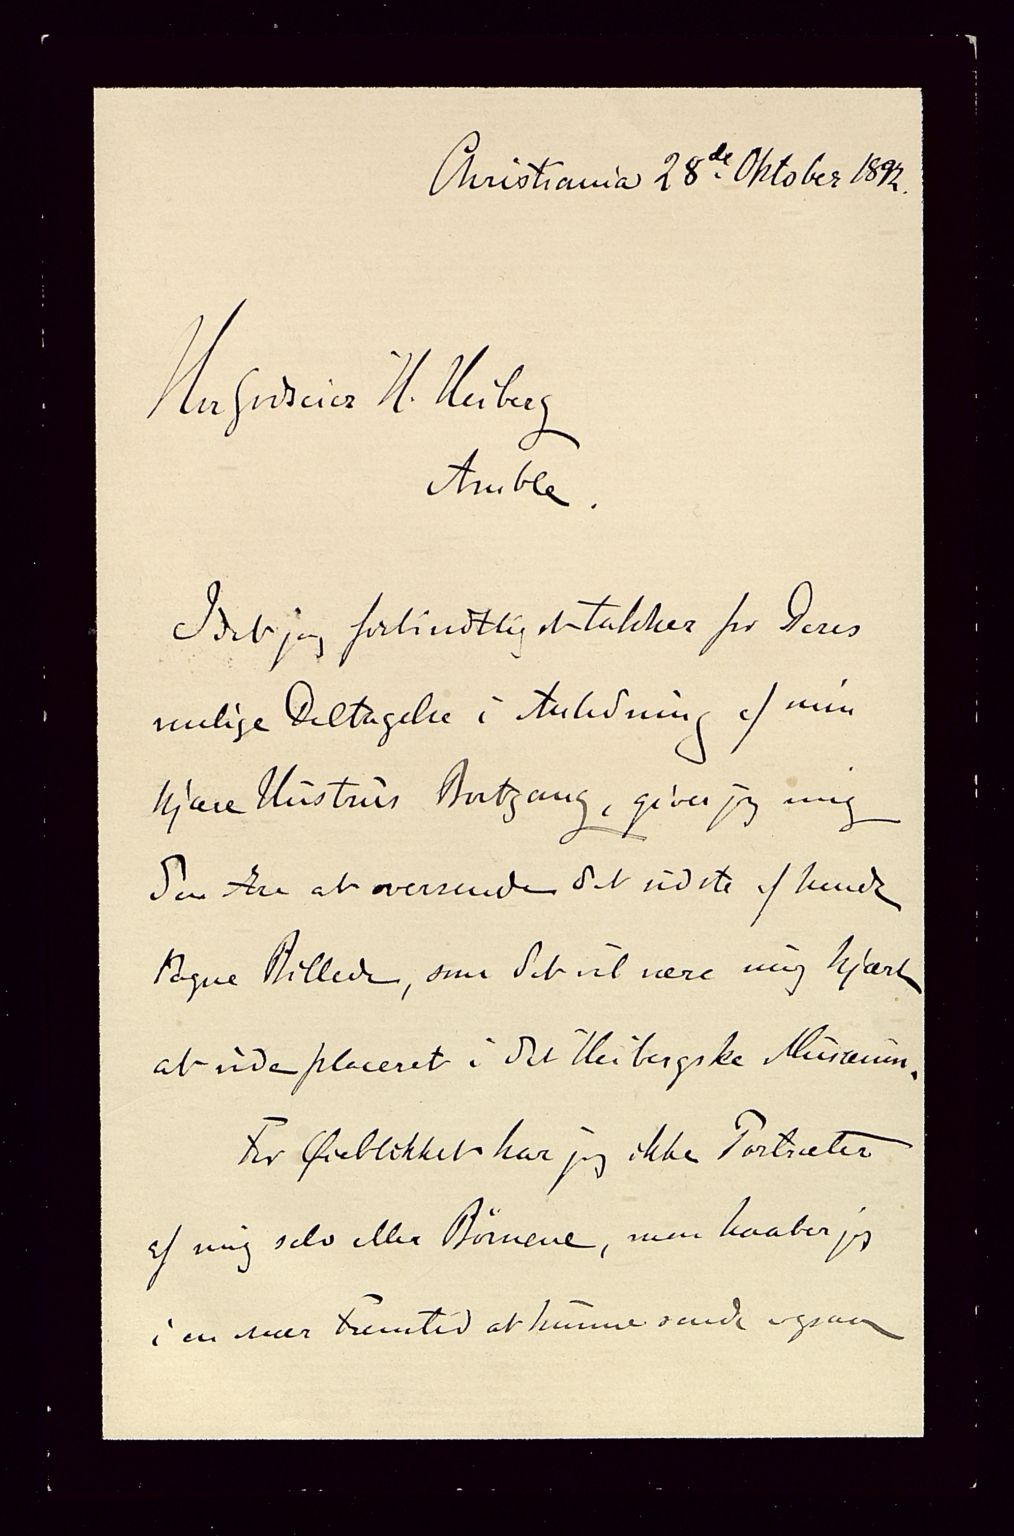 Christiania 28de Oktober 1892.
Herr Godseier H. Heiberg
Amble.
Idet jeg forbindtligst takker for Deres
venlige Deltagelse i Anledning af min
kjære Hustrus Bortgang, giver jeg mig
den Ære at oversende det sidste af hende
tagne Billede, som det vil være mig kjært
at vide placeret i det Heibergske Musæum.
For Øieblikket har jeg ikke Portræter
af mig selv eller Børnene, men haaber jeg
i en nær Fremtid at kunne sende ogsaa